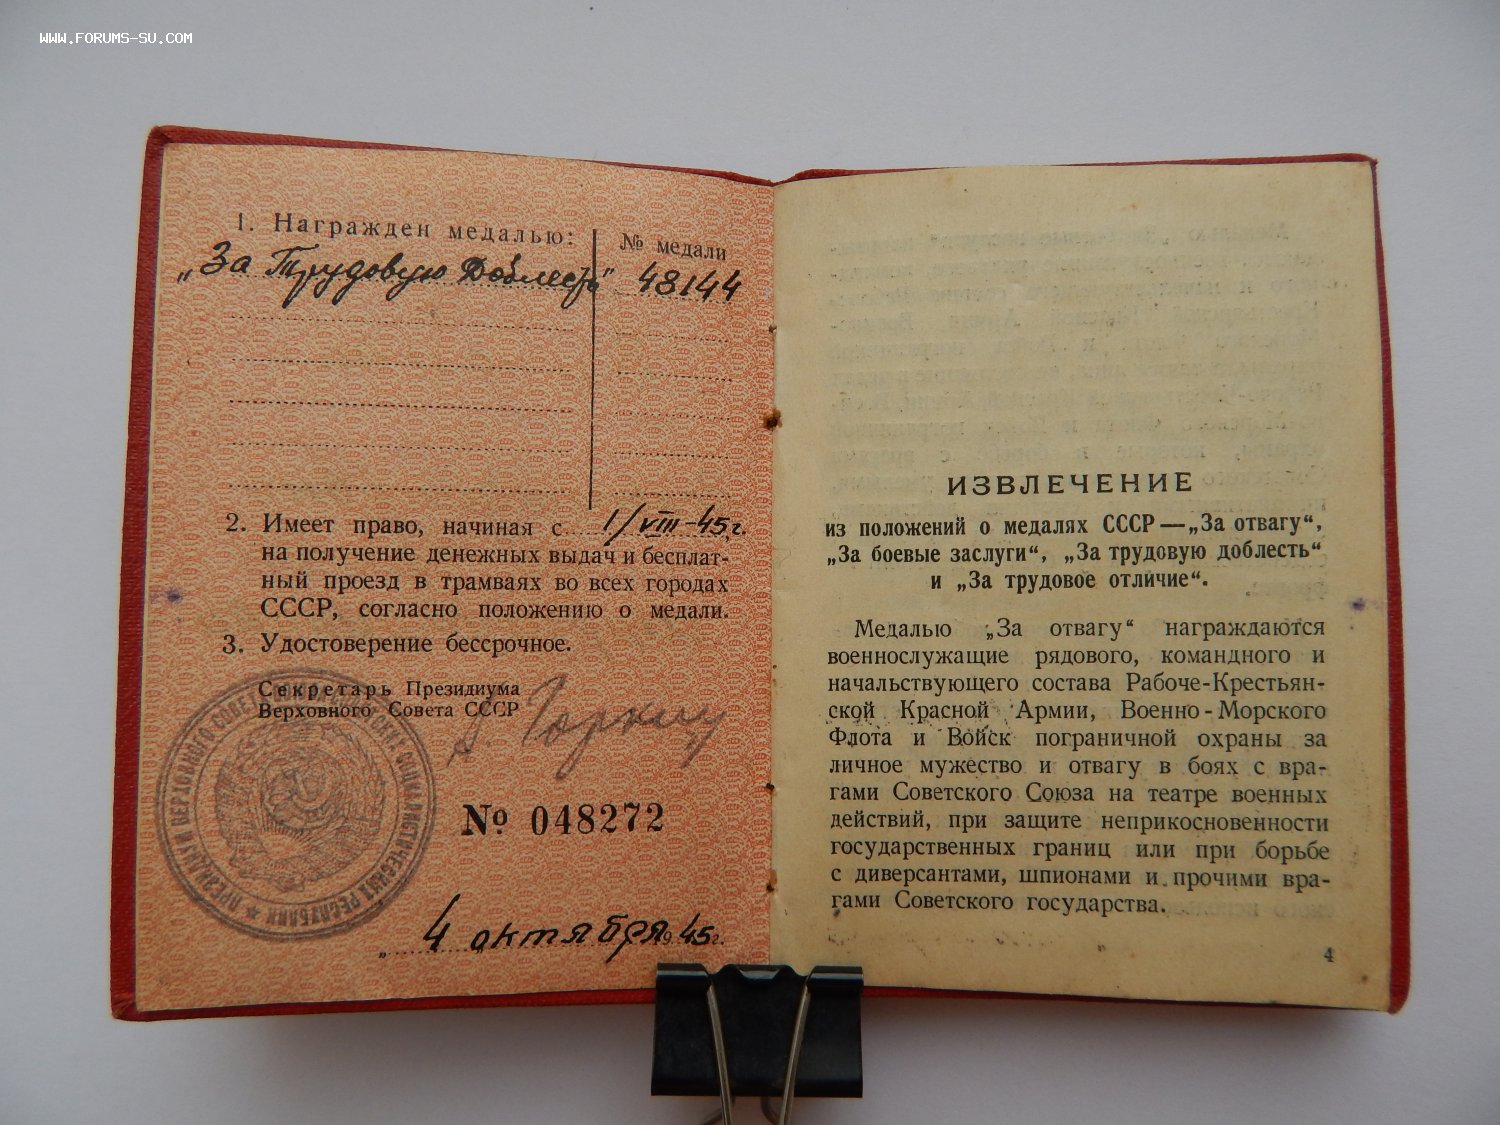 WWW.FORUMS-SU.COM
1. Награжден медалью:
№ медали
„За Трудовую Доблесть" 48144
2. Имеет право, начиная с 1/VIII-45 г.
на получение денежных выдач и бесплат-
ный проезд в трамваях во всех городах
СССР, согласно положению о медали.
3. Удостоверение бессрочное.
Секретарь Президиума
Верховного Совета СССР
А. Горкин
№ 048272
„ 4 октября 1945 г.
ИЗВЛЕЧЕНИЕ
из положений о медалях СССР—„За отвагу“,
„За боевые заслуги“, „За трудовую доблесть“
и „За трудовое отличие“.
Медалью „За отвагу“ награждаются
военнослужащие рядового, командного и
начальствующего состава Рабоче-Крестьян-
ской Красной Армии, Военно-Морского
Флота и Войск пограничной охраны за
личное мужество и отвагу в боях с вра-
гами Советского Союза на театре военных
действий, при защите неприкосновенности
государственных границ или при борьбе
с диверсантами, шпионами и прочими вра-
гами Советского государства.
4